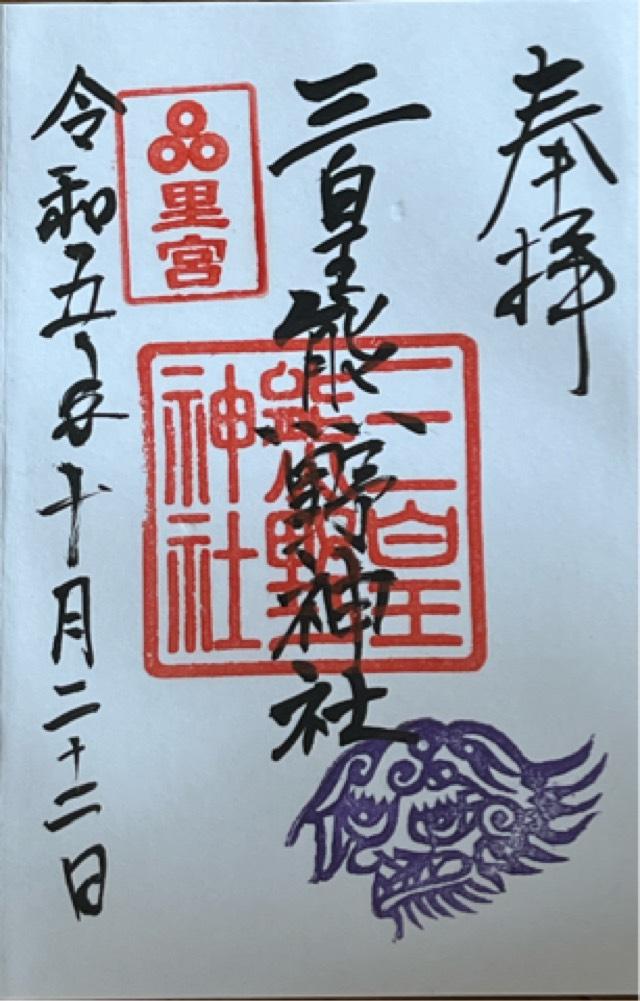 奉拝
三皇熊野神社
三皇熊野神社
里宮
令和五年十月二十二日